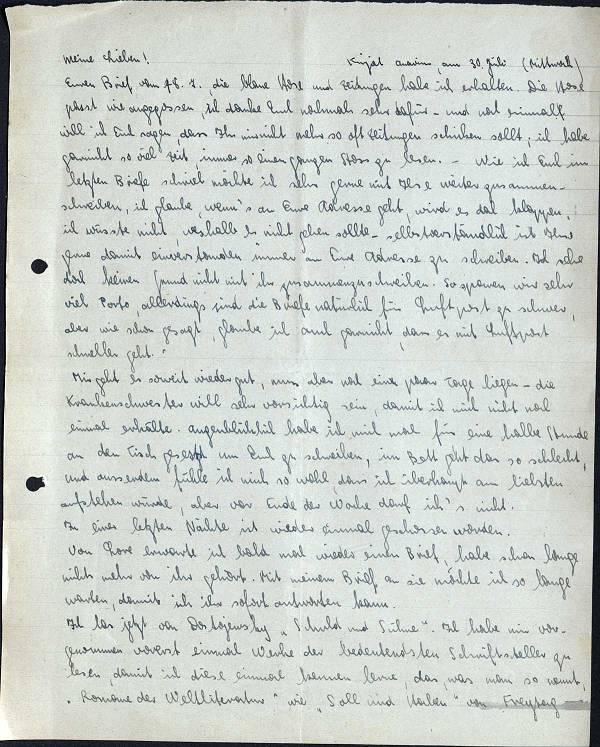 Meine Lieben! Kirjat anavim, am 30. Juli (Mittwoch)
Euren Brief vom 18. 7., die blaue Hose und Zeitungen habe ich erhalten. Die Hose
passt wie angegossen, ich danke Euch nochmals sehr dafür – und noch einmal
will ich Euch sagen, dass Ihr mir nicht mehr so oft Zeitungen schicken sollt, ich habe
garnicht so viel Zeit immer so einen ganzen Stoss zu lesen. – Wie ich Euch im
letzten Briefe schrieb möchte ich sehr gerne mit Ilse weiter zusammen-
schreiben, ich glaube, wenn's an Eure Adresse geht, wird es doch klappen,
ich wüsste nicht, weshalb es nicht gehen sollte – selbstverständlich ist Ilse
gerne damit einverstanden immer an Eure Adresse zu schreiben. Ich sehe
doch keinen Grund nicht mit ihr zusammenzuschreiben. So sparen wir sehr
viel Porto, allerdings sind die Briefe natürlich für Luftpost zu schwer,
aber wie schon gesagt, glaube ich auch garnicht, dass es mit Luftpost
schneller geht.
Mir geht es soweit wieder gut, muss aber noch ein paar Tage liegen – die
Krankenschwester will sehr vorsichtig sein, damit ich mich nicht noch
einmal erkälte. Augenblicklich habe ich mich mal für eine halbe Stunde
an den Tisch gesetzt um Euch zu schreiben, im Bett geht das so schlecht,
und ausserdem fühle ich mich so wohl, dass ich überhaupt am liebsten
aufstehen würde, aber vor Ende der Woche darf ich's nicht.
In einer letzten Nächte ist wieder einmal geschossen worden.
Von Lore erwarte ich bald mal wieder einen Brief, habe schon lange
nichts mehr von ihr gehört. Mit meinem Brief an sie möchte ich so lange
warten, damit ich ihr sofort antworten kann.
Ich las jetzt von Dostojewsky „Schuld und Sühne“. Ich habe mir vor-
genommen vorerst einmal Werke der bedeutendsten Schriftsteller zu
lesen, damit ich diese einmal kennen lerne, das, was man so nennt,
„Romane der Weltliteratur“ wie „Soll und Haben“ von Freytag